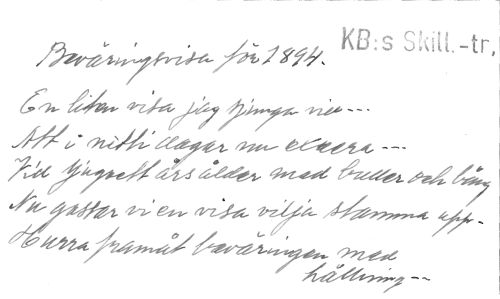 KB:s Skill.-tr.
Beväringsvisa för 1894.
En liten visa jag sjunga vill---
Att i nitti dagar nu exera---
Vid tjuguett års ålder med buller och bång
Nu gossar vi en visa vilja stamma upp-
Hurra framåt beväringen med
hållning--